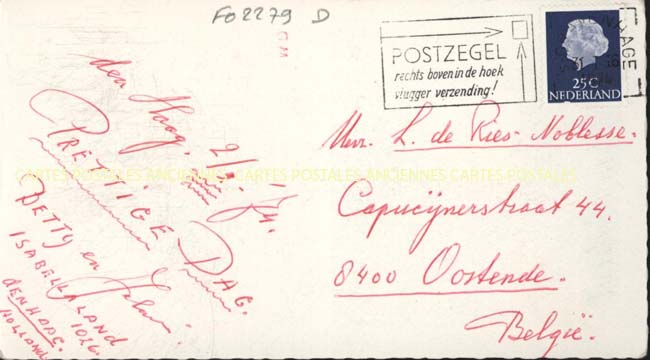 FO2279 D
GM
POSTZEGEL
rechts boven in de hoek
vlugger verzending!
25C
NEDERLAND
den Haag. 2/1-'74.
PRETTIGE DAG.
BETTY en
ISABELLALAND
1026.
DEN HAAG.
HOLLAND
Mevr. L. de Ries-Noblesse.
Capucijnerstraat 44.
8400 Oostende.
België.
CARTES POSTALES ANCIENNES CARTES POSTALES ANCIENNES CARTES POSTALES